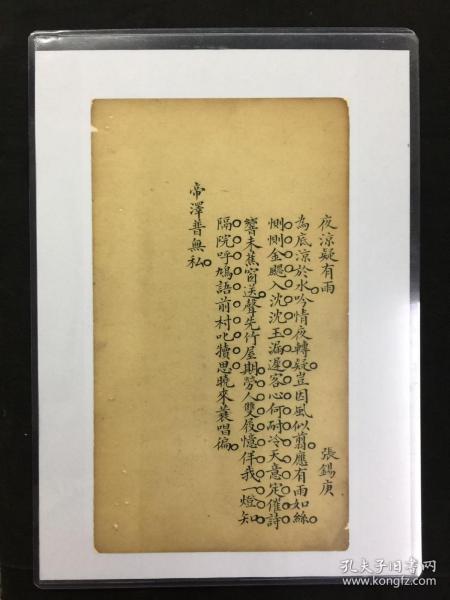 夜涼疑有雨
張錫庚
為底涼於水吟情夜轉疑豈因風似翦應有雨如絲
惻惻金颸入沈沈玉漏遲客心何耐冷天意定催詩
響未蕉窗送聲先竹屋期勞人雙屐憶伴我一燈知
隔院呼鳩語前村叱犢思曉來蓑唱徧
帝澤普無私
孔夫子旧书网
www.kongfz.com